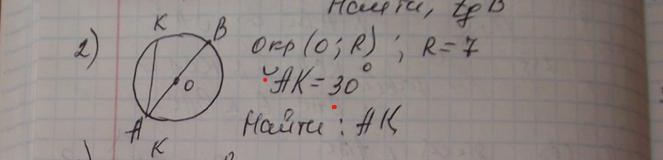 Найти, tg B
2) K B окр (O; R) ; R = 7
O ◡AK = 30°
A Найти : AK
K